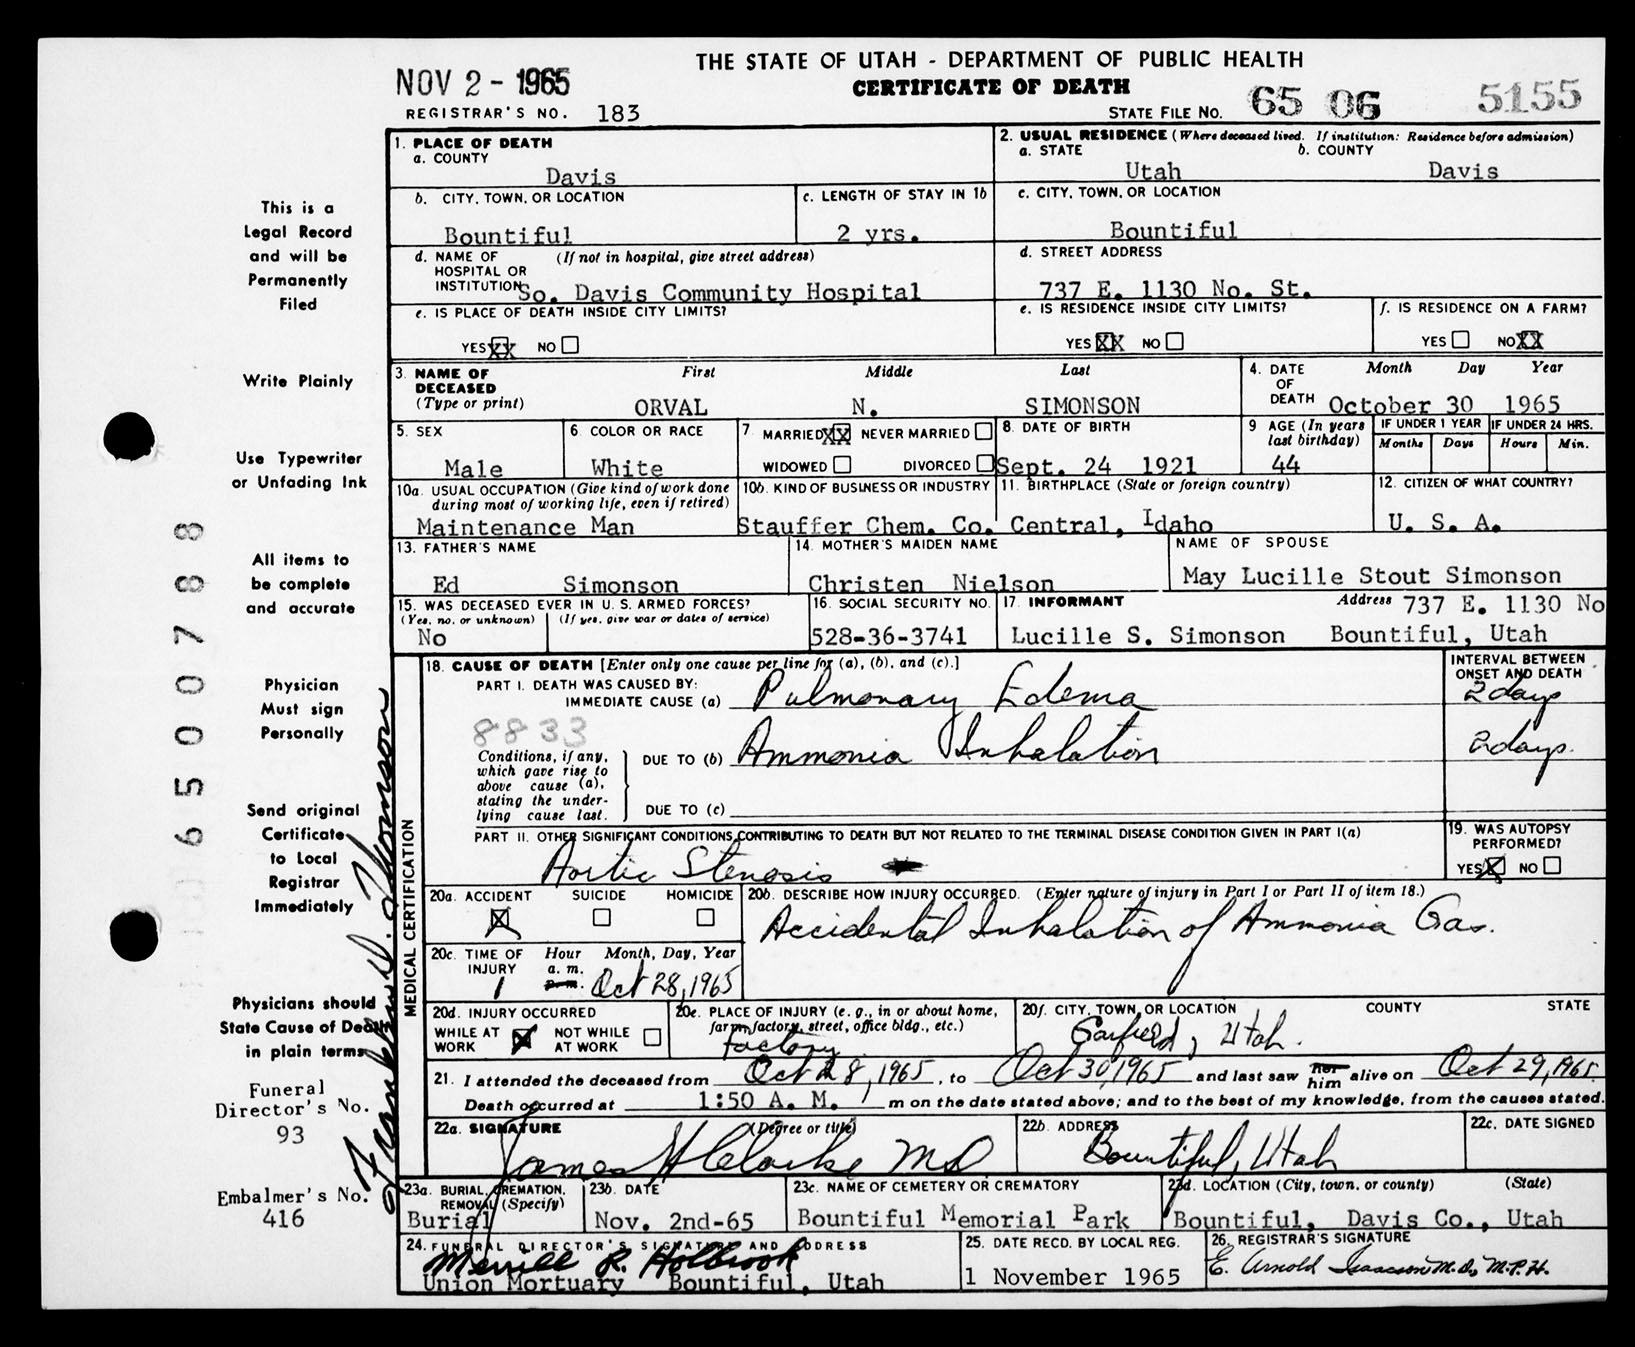 THE STATE OF UTAH - DEPARTMENT OF PUBLIC HEALTH
NOV 2 - 1965
CERTIFICATE OF DEATH
REGISTRAR'S NO. 183
STATE FILE NO. 65 06 5155
1. PLACE OF DEATH
a. COUNTY
Davis
2. USUAL RESIDENCE (Where deceased lived. If institution: Residence before admission)
a. STATE
Utah
b. COUNTY
Davis
b. CITY, TOWN, OR LOCATION
Bountiful
c. LENGTH OF STAY IN 1b
2 yrs.
c. CITY, TOWN, OR LOCATION
Bountiful
d. NAME OF (If not in hospital, give street address)
HOSPITAL OR
INSTITUTION So. Davis Community Hospital
d. STREET ADDRESS
737 E. 1130 No. St.
e. IS PLACE OF DEATH INSIDE CITY LIMITS?
YES XX NO
e. IS RESIDENCE INSIDE CITY LIMITS?
YES XX NO
f. IS RESIDENCE ON A FARM?
YES NO XX
3. NAME OF First Middle Last
DECEASED
(Type or print) ORVAL N. SIMONSON
4. DATE Month Day Year
OF
DEATH October 30 1965
5. SEX
Male
6. COLOR OR RACE
White
7. MARRIED XX NEVER MARRIED
WIDOWED DIVORCED
8. DATE OF BIRTH
Sept. 24 1921
9 AGE (In years
last birthday)
44
IF UNDER 1 YEAR
Months Days
IF UNDER 24 HRS.
Hours Min.
10a. USUAL OCCUPATION (Give kind of work done
during most of working life, even if retired)
Maintenance Man
10b. KIND OF BUSINESS OR INDUSTRY
Stauffer Chem. Co.
11. BIRTHPLACE (State or foreign country)
Central, Idaho
12. CITIZEN OF WHAT COUNTRY?
U. S. A.
13. FATHER'S NAME
Ed Simonson
14. MOTHER'S MAIDEN NAME
Christen Nielson
NAME OF SPOUSE
May Lucille Stout Simonson
15. WAS DECEASED EVER IN U. S. ARMED FORCES?
(Yes, no, or unknown) (If yes, give war or dates of service)
No
16. SOCIAL SECURITY NO.
528-36-3741
17. INFORMANT Address 737 E. 1130 No
Lucille S. Simonson Bountiful, Utah
MEDICAL CERTIFICATION
18. CAUSE OF DEATH [Enter only one cause per line for (a), (b), and (c).]
INTERVAL BETWEEN
ONSET AND DEATH
PART I. DEATH WAS CAUSED BY:
IMMEDIATE CAUSE (a) Pulmonary Edema 2 days
8833
Conditions, if any,
which gave rise to
above cause (a),
stating the under-
lying cause last.
DUE TO (b) Ammonia Inhalation 2 days.
DUE TO (c)
PART II. OTHER SIGNIFICANT CONDITIONS CONTRIBUTING TO DEATH BUT NOT RELATED TO THE TERMINAL DISEASE CONDITION GIVEN IN PART I(a)
Aortic Stenosis
19. WAS AUTOPSY
PERFORMED?
YES X NO
20a. ACCIDENT SUICIDE HOMICIDE
X
20b. DESCRIBE HOW INJURY OCCURRED. (Enter nature of injury in Part I or Part II of item 18.)
Accidental Inhalation of Ammonia Gas.
20c. TIME OF Hour Month, Day, Year
INJURY a. m.
1 p. m. Oct 28, 1965
20d. INJURY OCCURRED
WHILE AT WORK X NOT WHILE AT WORK
20e. PLACE OF INJURY (e. g., in or about home,
farm, factory, street, office bldg., etc.)
factory
20f. CITY, TOWN, OR LOCATION COUNTY STATE
Garfield, Utah.
21. I attended the deceased from Oct 28, 1965, to Oct 30, 1965 and last saw her him alive on Oct 29, 1965.
Death occurred at 1:50 A. M. m on the date stated above; and to the best of my knowledge, from the causes stated.
22a. SIGNATURE (Degree or title)
James H Clarke MD
22b. ADDRESS
Bountiful, Utah
22c. DATE SIGNED
23a. BURIAL, CREMATION,
REMOVAL (Specify)
Burial
23b. DATE
Nov. 2nd-65
23c. NAME OF CEMETERY OR CREMATORY
Bountiful Memorial Park
23d. LOCATION (City, town, or county) (State)
Bountiful, Davis Co., Utah
24. FUNERAL DIRECTOR'S SIGNATURE AND ADDRESS
Merrill R. Holbrook
Union Mortuary Bountiful, Utah
25. DATE RECD. BY LOCAL REG.
1 November 1965
26. REGISTRAR'S SIGNATURE
E. Arnold Isaacson M.D., M.P.H.
This is a
Legal Record
and will be
Permanently
Filed
Write Plainly
Use Typewriter
or Unfading Ink
All items to
be complete
and accurate
Physician
Must sign
Personally
Send original
Certificate
to Local
Registrar
Immediately
Physicians should
State Cause of Death
in plain terms
Funeral
Director's No.
93
Embalmer's No.
416
6500788
Franklin D. Thomson